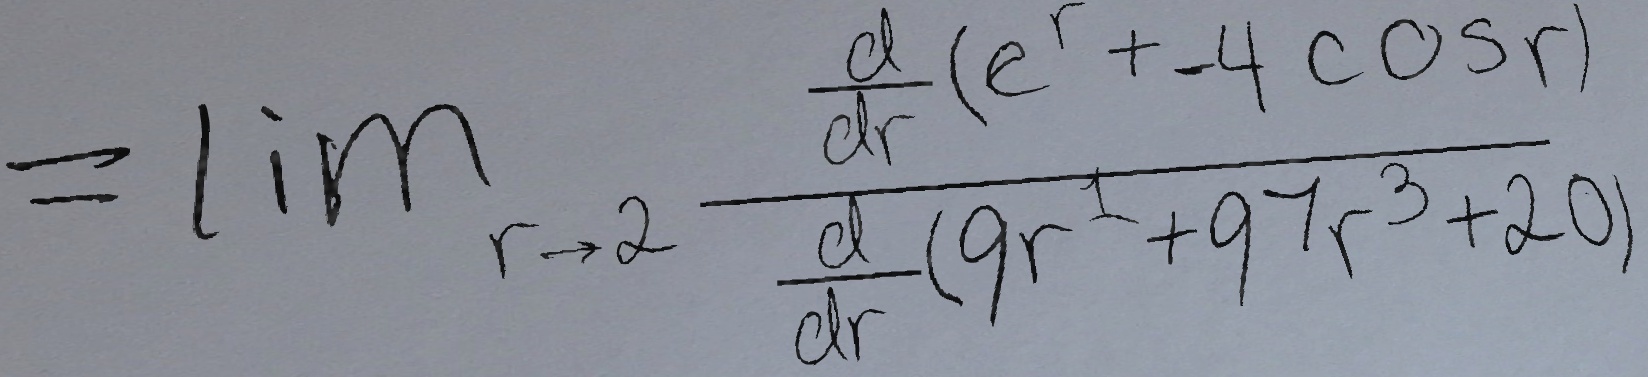 = \lim_{r \to 2} \frac{\frac{d}{dr}(e^r + -4 \cos r)}{\frac{d}{dr}(9r^1 + 97r^3 + 20)}